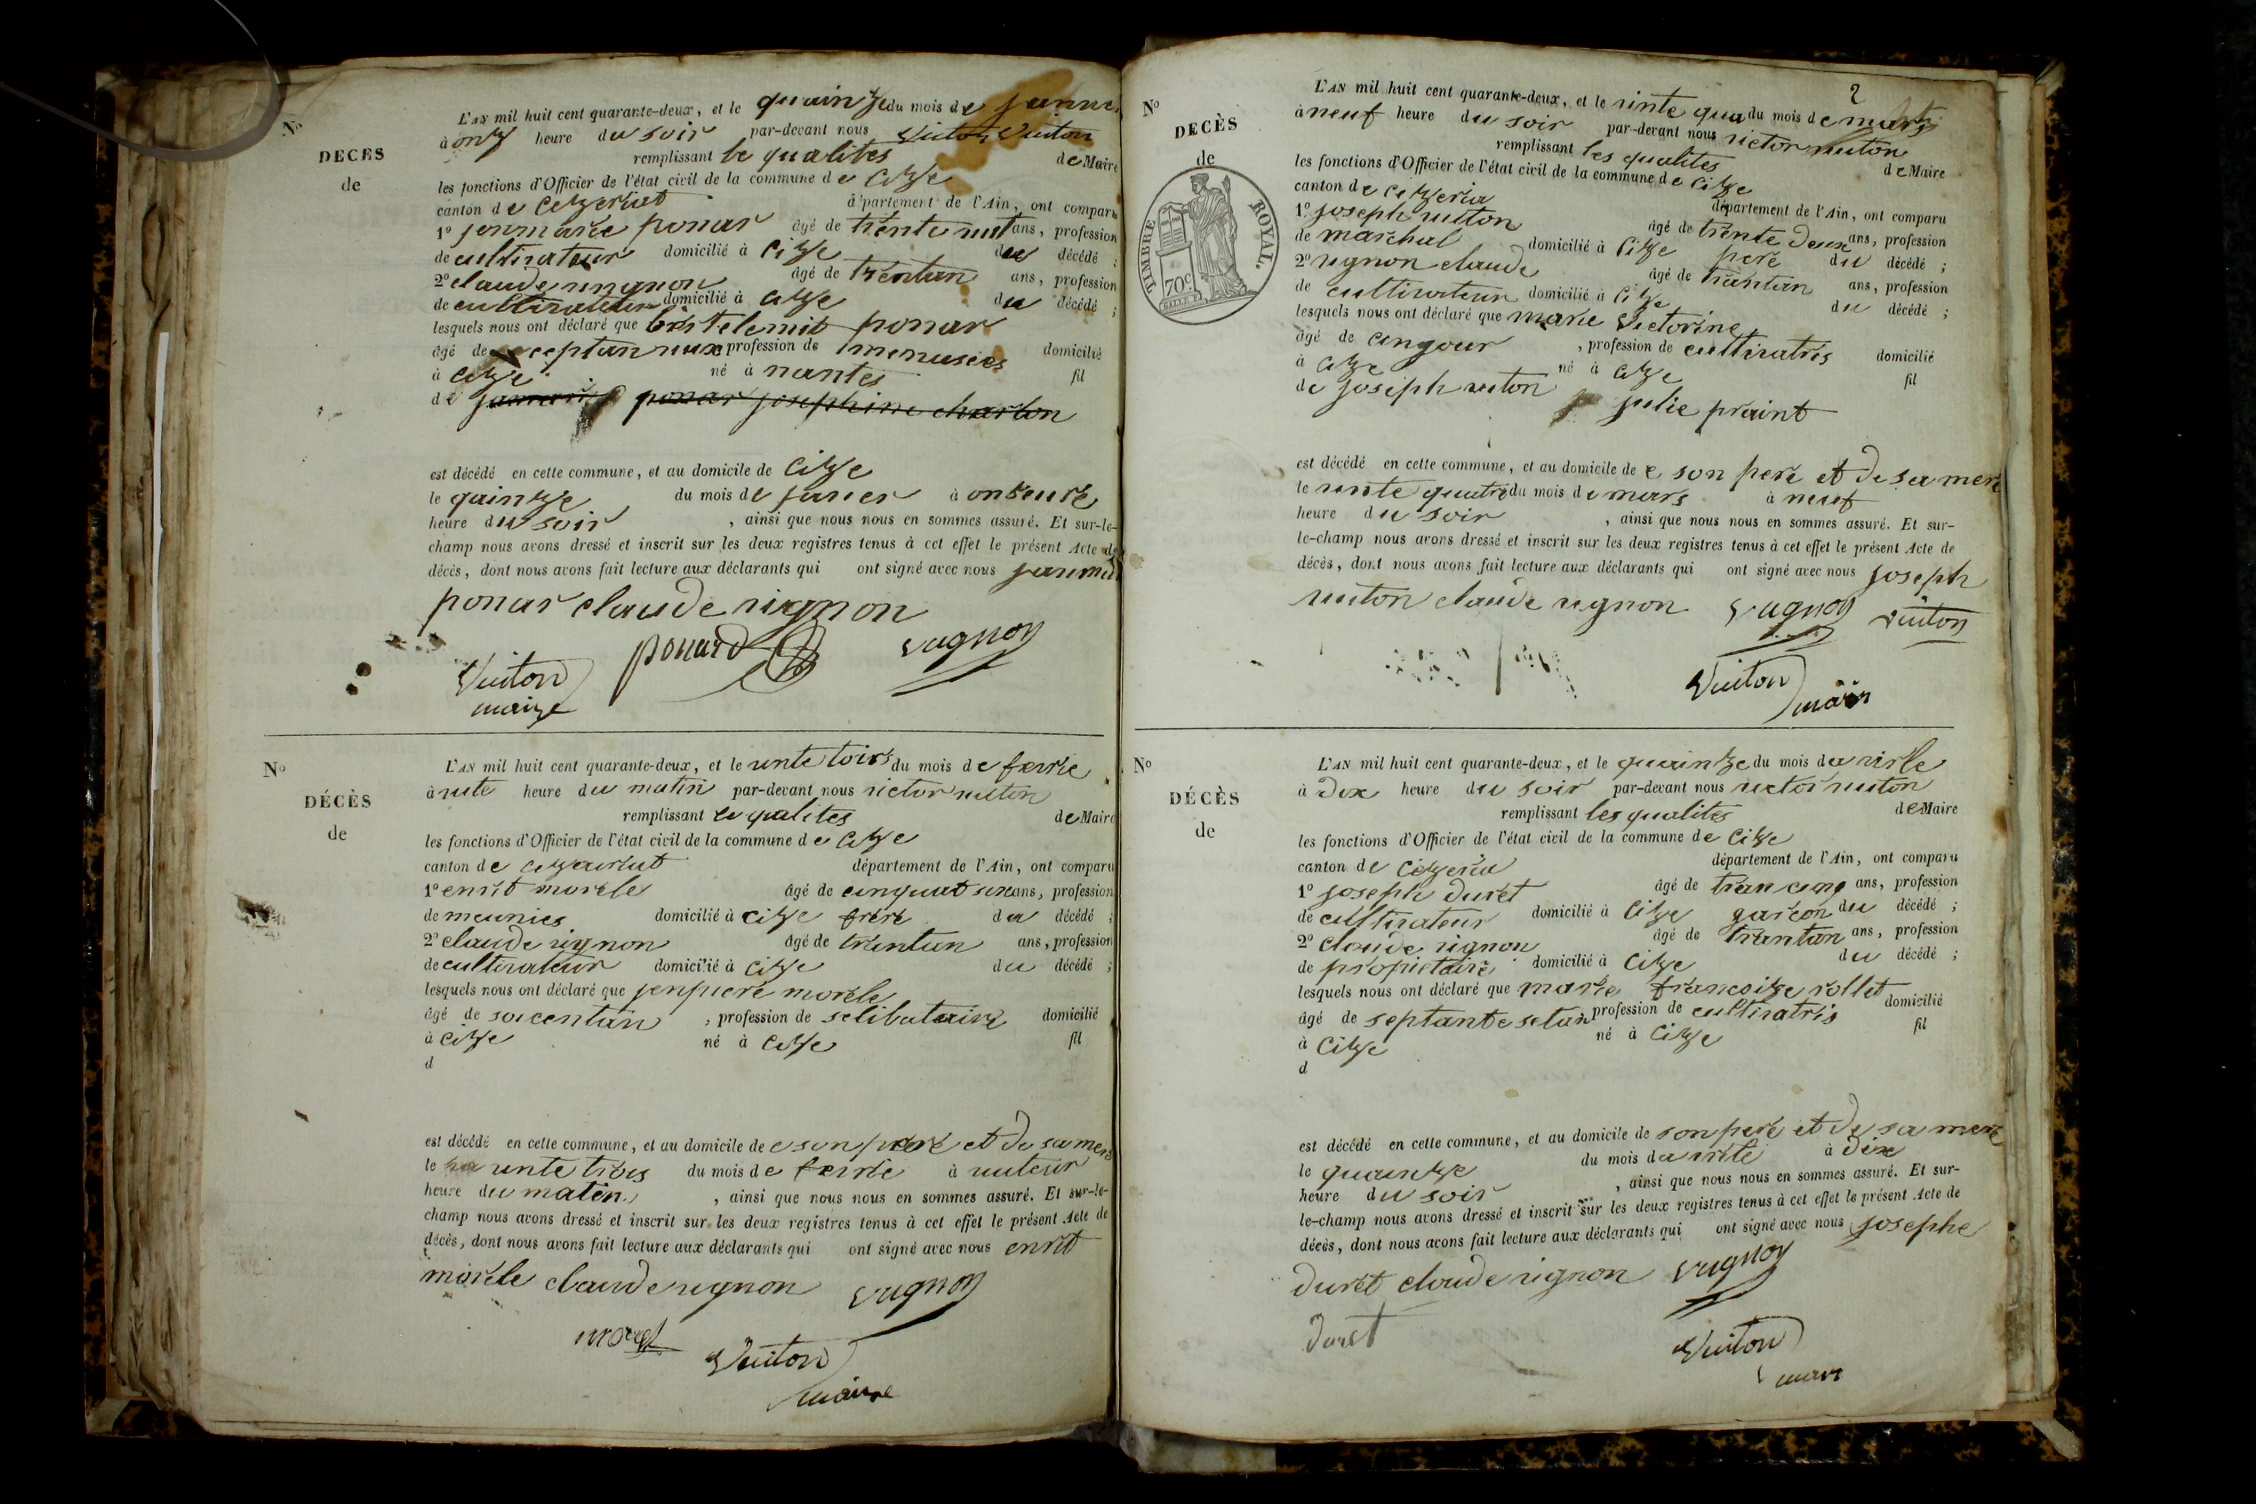 No
DECES
de
L'AN mil huit cent quarante-deux, et le quainzze du mois de janvie
à onzz heure du soir par-devant nous victor vuiton
remplissant le qualites de Maire
les fonctions d'Officier de l'état civil de la commune de cizze
canton de cezzeriat département de l'Ain, ont comparu
1º jenmarie ponar âgé de trente uut ans, profession
de cultivateur domicilié à cizze du décédé ;
2º claude vignon âgé de trentun ans, profession
de cultivateur domicilié à cizze du décédé ;
lesquels nous ont déclaré que ponar
âgé de profession de menusies domicilié
à cizze né à nantes fil
de ponar josephine charton
est décédé en cette commune, et au domicile de cizze
le quainzze du mois de janier à onseure
heure du soir , ainsi que nous nous en sommes assuré. Et sur-le-
champ nous avons dressé et inscrit sur les deux registres tenus à cet effet le présent Acte de
décès, dont nous avons fait lecture aux déclarants qui ont signé avec nous
ponar claude vignon
ponard vugnon
Vuiton
maire
No
DÉCÈS
de
L'AN mil huit cent quarante-deux, et le vinte toirs du mois de fevrie
à uite heure du matin par-devant nous victor vuiton
remplissant le qualites de Maire
les fonctions d'Officier de l'état civil de la commune de cizze
canton de département de l'Ain, ont comparu
1º enrit morele âgé de cinquat ans, profession
de meunies domicilié à cizze frere du décédé ;
2º claude vignon âgé de trentun ans, profession
de cultivateur domicilié à cizze du décédé ;
lesquels nous ont déclaré que jenpiere morele
âgé de soicentan , profession de selibataire domicilié
à cizze né à cizze fil
d
est décédé en cette commune, et au domicile de e son pere et de sa mere
le vinte trois du mois de fevrie à uiteur
heure du maten , ainsi que nous nous en sommes assuré. Et sur-le-
champ nous avons dressé et inscrit sur les deux registres tenus à cet effet le présent Acte de
décès, dont nous avons fait lecture aux déclarants qui ont signé avec nous enrit
morele claude vignon vugnon
morel Vuiton
maire
2
No
DECÈS
de
TIMBRE ROYAL.
70c
L'AN mil huit cent quarante-deux, et le vinte qua du mois de mars
à neuf heure du soir par-devant nous victor vuiton
remplissant les qualites de Maire
les fonctions d'Officier de l'état civil de la commune de cizze
canton de cezzeria département de l'Ain, ont comparu
1º joseph vuiton âgé de trente deux ans, profession
de marechal domicilié à cizze pere du décédé ;
2º vignon claude âgé de trantun ans, profession
de cultivateur domicilié à cizze du décédé ;
lesquels nous ont déclaré que marie victorine
âgé de cinqour , profession de cultivatris domicilié
à cizze né à cizze fil
de joseph vuiton julie praint
est décédé en cette commune, et au domicile de e son pere et de sa mere
le vinte quatre du mois de mars à neuf
heure du soir , ainsi que nous nous en sommes assuré. Et sur-
le-champ nous avons dressé et inscrit sur les deux registres tenus à cet effet le présent Acte de
décès, dont nous avons fait lecture aux déclarants qui ont signé avec nous joseph
vuiton claude vignon vugnon vuiton
Vuiton
maire
No
DÉCÈS
de
L'AN mil huit cent quarante-deux, et le quainzze du mois d avrile
à dix heure du soir par-devant nous victor vuiton
remplissant les qualites de Maire
les fonctions d'Officier de l'état civil de la commune de cizze
canton de cezeria département de l'Ain, ont comparu
1º joseph duret âgé de tran cinq ans, profession
de cultivateur domicilié à cizze garcon du décédé ;
2º claude vignon âgé de trantan ans, profession
de propietaire domicilié à cizze du décédé ;
lesquels nous ont déclaré que marie francoize rollet
âgé de septante setan profession de cultivatris domicilié
à cizze né à cizze fil
d
est décédé en cette commune, et au domicile de son pere et de sa mere
le quainzze du mois d à dix
heure du soir , ainsi que nous nous en sommes assuré. Et sur-
le-champ nous avons dressé et inscrit sur les deux registres tenus à cet effet le présent Acte de
décès, dont nous avons fait lecture aux déclarants qui ont signé avec nous josephe
duret claude vignon vugnon
duret Vuiton
maire